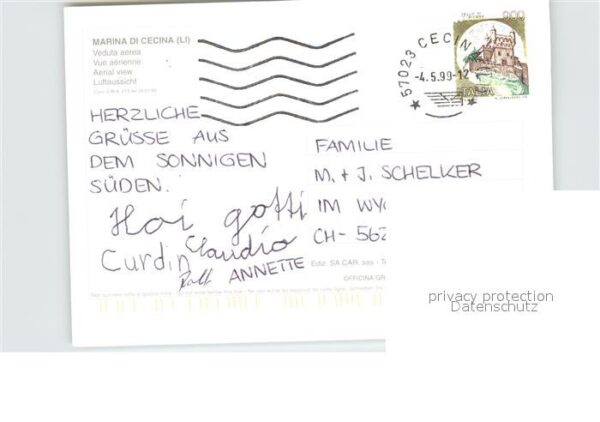 MARINA DI CECINA (LI)
Veduta aerea
Vue aérienne
Aerial view
Luftaussicht
57023 CECINA
-4.5.99-12
ITALIA
HERZLICHE
GRÜSSE AUS
DEM SONNIGEN
SÜDEN.
Hoi gotti
Claudio
Curdin
Ralf ANNETTE
FAMILIE
M. + J. SCHELKER
IM WY
CH- 562
Ediz. SA CAR. sas - T
OFFICINA GR
privacy protection
Datenschutz